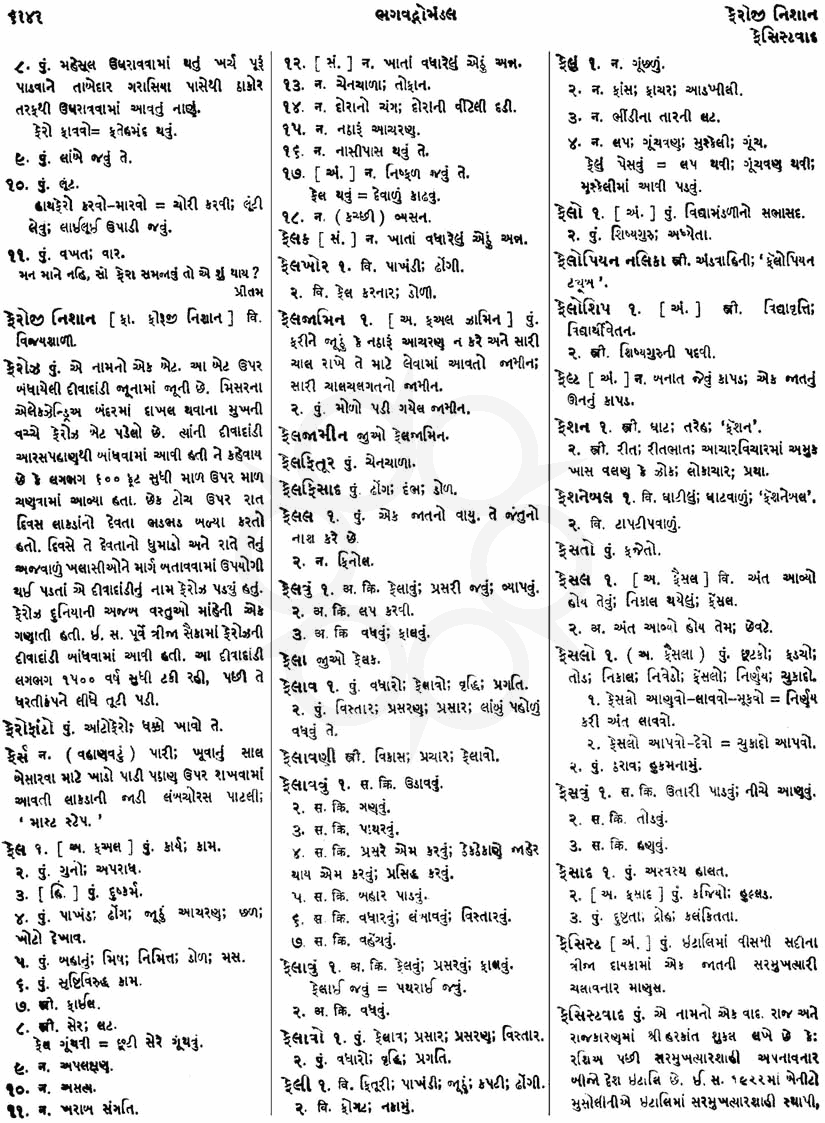 ૬૧૪૨
ભગવદ્ગોમંડલ
ફેરોજી નિશાન
ફેસિસ્ટવાદ
૮. પું. મહેસૂલ ઉઘરાવવામાં થતું ખર્ચ પૂરૂં
પાડવાને તાબેદાર ગરાસિયા પાસેથી ઠાકોર
તરફથી ઉઘરાવવામાં આવતું નાણું.
ફેરો ફાવવો= ફતેહમંદ થવું.
૯. પું. લાંબે જવું તે.
૧૦. પું. લૂંટ.
હાથફેરો કરવો-મારવો = ચોરી કરવી; લૂંટી
લેવું; લાઈલૂઈ ઉપાડી જવું.
૧૧. પું. વખત; વાર.
મન માને નહિ, સૌ ફેરા સમજાવું તો એ શું થાય?
પ્રીતમ
ફેરોજી નિશાન [ ફા. ફીરૂજી નિશાન ] વિ.
વિજયશાળી.
ફેરોઝ પું. એ નામનો એક બેટ. આ બેટ ઉપર
બંધાયેલી દીવાદાંડી જૂનામાં જૂની છે. મિસરના
એલેક્ઝેન્ડ્રિઆ બંદરમાં દાખલ થવાના મુખની
વચ્ચે ફેરોઝ બેટ પડેલો છે. ત્યાંની દીવાદાંડી
આરસપહાણથી બાંધવામાં આવી હતી ને કહેવાય
છે કે લગભગ ૬૦૦ ફૂટ સુધી માળ ઉપર માળ
ચણવામાં આવ્યા હતા. છેક ટોચ ઉપર રાત
દિવસ લાકડાંનો દેવતા ભડભડ બળ્યા કરતો
હતો. દિવસે તે દેવતાનો ધુમાડો અને રાતે તેનું
અજવાળું ખલાસીઓને માર્ગ બતાવવામાં ઉપયોગી
થઈ પડતાં એ દીવાદાંડીનું નામ ફેરોઝ પડયું હતું.
ફેરોઝ દુનિયાની અજબ વસ્તુઓ માંહેની એક
ગણાતી હતી. ઈ. સ. પૂર્વે ત્રીજા સૈકામાં ફેરોઝની
દીવાદાંડી બાંધવામાં આવી હતી. આ દીવાદાંડી
લગભગ ૧૫૦૦ વર્ષ સુધી ટકી રહી, પછી તે
ધરતીકંપને લીધે તૂટી પડી.
ફેરોફાંટો પું. આંટોફેરો; ધક્કો ખાવો તે.
ફેર્સ ન. ( વહાણવટું ) પારી; ખૂવાનું સાલ
બેસારવા માટે ખાડો પાડી પઠાણ ઉપર રાખવામાં
આવતી લાકડાની જાડી લંબચોરસ પાટલી;
‘ માસ્ટ સ્ટેપ. ’
ફેલ ૧. [ અ. ફઅલ ] પું. કાર્ય; કામ.
૨. પું. ગુનો; અપરાધ.
૩. [ હિં. ] પું. દુષ્કર્મ.
૪. પું. પાખંડ; ઢોંગ; જૂઠું આચરણ; છળ;
ખોટો દેખાવ.
૫. પું. બહાનું; મિષ; નિમિત્ત; ડોળ; મસ.
૬. પું. સૃષ્ટિવિરુદ્ધ કામ.
૭. સ્ત્રી. ફાઈલ.
૮. સ્ત્રી. સેર; લટ.
ફેલ ગૂંથવી = છૂટી સેરે ગૂંથવું.
૯. ન. અપલક્ષણ.
૧૦. ન. અસત્ય.
૧૧. ન. ખરાબ સંગતિ.
૧૨. [ સં. ] ન. ખાતાં વધારેલું એઠું અન્ન.
૧૩. ન. ચેનચાળા; તોફાન.
૧૪. ન. દોરાનો ચંગ; દોરાની વીંટેલી દડી.
૧૫. ન. નઠારૂં આચરણ.
૧૬. ન. નાસીપાસ થવું તે.
૧૭. [ અં. ] ન. નિષ્ફળ જવું તે.
ફેલ થવું = દેવાળું કાઢવું.
૧૮. ન. ( કચ્છી ) વ્યસન.
ફેલક [ સં. ] ન. ખાતાં વધારેલું એઠું અન્ન.
ફેલખોર ૧. વિ. પાખંડી; ઢોંગી.
૨. વિ. ફેલ કરનાર; ડોળી.
ફેલજામિન ૧. [ અ. ફઅલ ઝામિન ] પું.
ફરીને જૂઠું કે નઠારૂં આચરણ ન કરે અને સારી
ચાલ રાખે તે માટે લેવામાં આવતો જામીન;
સારી ચાલચલગતનો જામીન.
૨. પું. મોળો પડી ગયેલ જામીન.
ફેલજામીન જુઓ ફેલજામિન.
ફેલફિતૂર પું. ચેનચાળા.
ફેલફિસાદ પું. ઢોંગ; દંભ; ડોળ.
ફેલલ ૧. પું. એક જાતનો વાયુ. તે જંતુનો
નાશ કરે છે.
૨. ન. ફિનોલ.
ફેલવું ૧. અ. ક્રિ. ફેલાવું; પ્રસરી જવું; વ્યાપવું.
૨. અ. ક્રિ. લપ કરવી.
૩. અ. ક્રિ વધવું; ફાલવું.
ફેલા જુઓ ફેલક.
ફેલાવ ૧. પું. વધારો; ફેલાવો; વૃદ્ધિ; પ્રગતિ.
૨. પું. વિસ્તાર; પ્રસરણ; પ્રસાર; લાંબું પહોળું
વધવું તે.
ફેલાવણી સ્ત્રી. વિકાસ; પ્રચાર; ફેલાવો.
ફેલાવવું ૧. સ. ક્રિ. ઉડાવવું.
૨. સ. ક્રિ. ગણવું.
૩. સ. ક્રિ. પાથરવું.
૪. સ. ક્રિ. પ્રસરે એમ કરવું; ઠેકઠેકાણે જાહેર
થાય એમ કરવું; પ્રસિદ્ધ કરવું.
૫. સ. ક્રિ. બહાર પાડવું.
૬. સ. ક્રિ. વધારવું; લંબાવવું; વિસ્તારવું.
૭. સ. ક્રિ. વહેંચવું.
ફેલાવું ૧. અ. ક્રિ. ફેલવું; પ્રસરવું; ફાલવું.
ફેલાઈ જવું = પથરાઈ જવું.
૨. અ. ક્રિ. વધવું.
ફેલાવો ૧. પું. ફેલાવ; પ્રસાર; પ્રસરણ; વિસ્તાર.
૨. પું. વધારો; વૃદ્ધિ; પ્રગતિ.
ફેલી ૧. વિ. ફિતૂરી; પાખંડી; જૂઠું; કપટી; ઢોંગી.
૨. વિ. ફોગટ; નકામું.
ફેલું ૧. ન. ગૂંછળું.
૨. ન. ફાંસ; ફાચર; આડખીલી.
૩. ન. ભીંડીના તારની લટ.
૪. ન. લપ; ગૂંચવણ; મુશ્કેલી; ગૂંચ.
ફેલું પેસવું = લપ થવી; ગૂંચવણ થવી;
મુશ્કેલીમાં આવી પડવું.
ફેલો ૧. [ અં. ] પું. વિદ્યામંડળીનો સભાસદ.
૨. પું. શિષ્યગુરુ; અધ્યેતા.
ફેલોપિયન નલિકા સ્ત્રી. અંડવાહિની; ‘ફૅલોપિયન
ટ્યૂબ’.
ફેલોશિપ ૧. [ અં. ] સ્ત્રી. વિદ્યાવૃત્તિ;
વિદ્યાર્થીવેતન.
૨. સ્ત્રી. શિષ્યગુરુની પદવી.
ફેલ્ટ [ અં. ] ન. બનાત જેવું કાપડ; એક જાતનું
ઊનનું કાપડ.
ફેશન ૧. સ્ત્રી. ઘાટ; તરેહ; ‘ફૅશન’.
૨. સ્ત્રી. રીત; રીતભાત; આચારવિચારમાં અમુક
ખાસ વલણ કે ઝોક; લોકાચાર; પ્રથા.
ફેશનેબલ ૧. વિ. ઘાટીલું; ઘાટવાળું; ‘ફૅશનેબલ’.
૨. વિ. ટાપટીપવાળું.
ફેસતો પું. ફજેતો.
ફેસલ ૧. [ અ. ફૈસલ ] વિ. અંત આવ્યો
હોય તેવું; નિકાલ થયેલું; ફેંસલ.
૨. અ. અંત આવ્યો હોય તેમ; છેવટે.
ફેસલો ૧. ( અ. ફૈસલા ) પું. છૂટકો; ફડચો;
તોડ; નિકાલ; નિવેડો; ફેંસલો; નિર્ણય; ચુકાદો.
૧. ફેસલો આણવો-લાવવો-મૂકવો = નિર્ણય
કરી અંત લાવવો.
૨. ફેસલો આપવો-દેવો = ચુકાદો આપવો.
૨. પું. ઠરાવ; હુકમનામું.
ફેસવું ૧. સ. ક્રિ. ઉતારી પાડવું; નીચે આણવું.
૨. સ. ક્રિ. તોડવું.
૩. સ. ક્રિ. હણવું.
ફેસાદ ૧. પું. અસ્વસ્થ હાલત.
૨. [ અ. ફસાદ ] પું. કજિયો; હુલ્લડ.
૩. પું. દુષ્ટતા; દ્રોહ; કલંકિતતા.
ફેસિસ્ટ [ અં. ] પું. ઇટાલિમાં વીસમી સદીના
ત્રીજા દાયકામાં એક જાતની સરમુખત્યારી
ચલાવનાર માણસ.
ફેસિસ્ટવાદ પું. એ નામનો એક વાદ. રાજ અને
રાજકારણમાં શ્રી હરકાંત શુક્લ લખે છે કે:
રશિઆ પછી સરમુખત્યારશાહી અપનાવનાર
બીજો દેશ ઇટાલિ છે. ઈ. સ. ૧૯૨૨માં બેનીટો
મુસોલીનીએ ઇટાલિમાં સરમુખત્યારશાહી સ્થાપી,